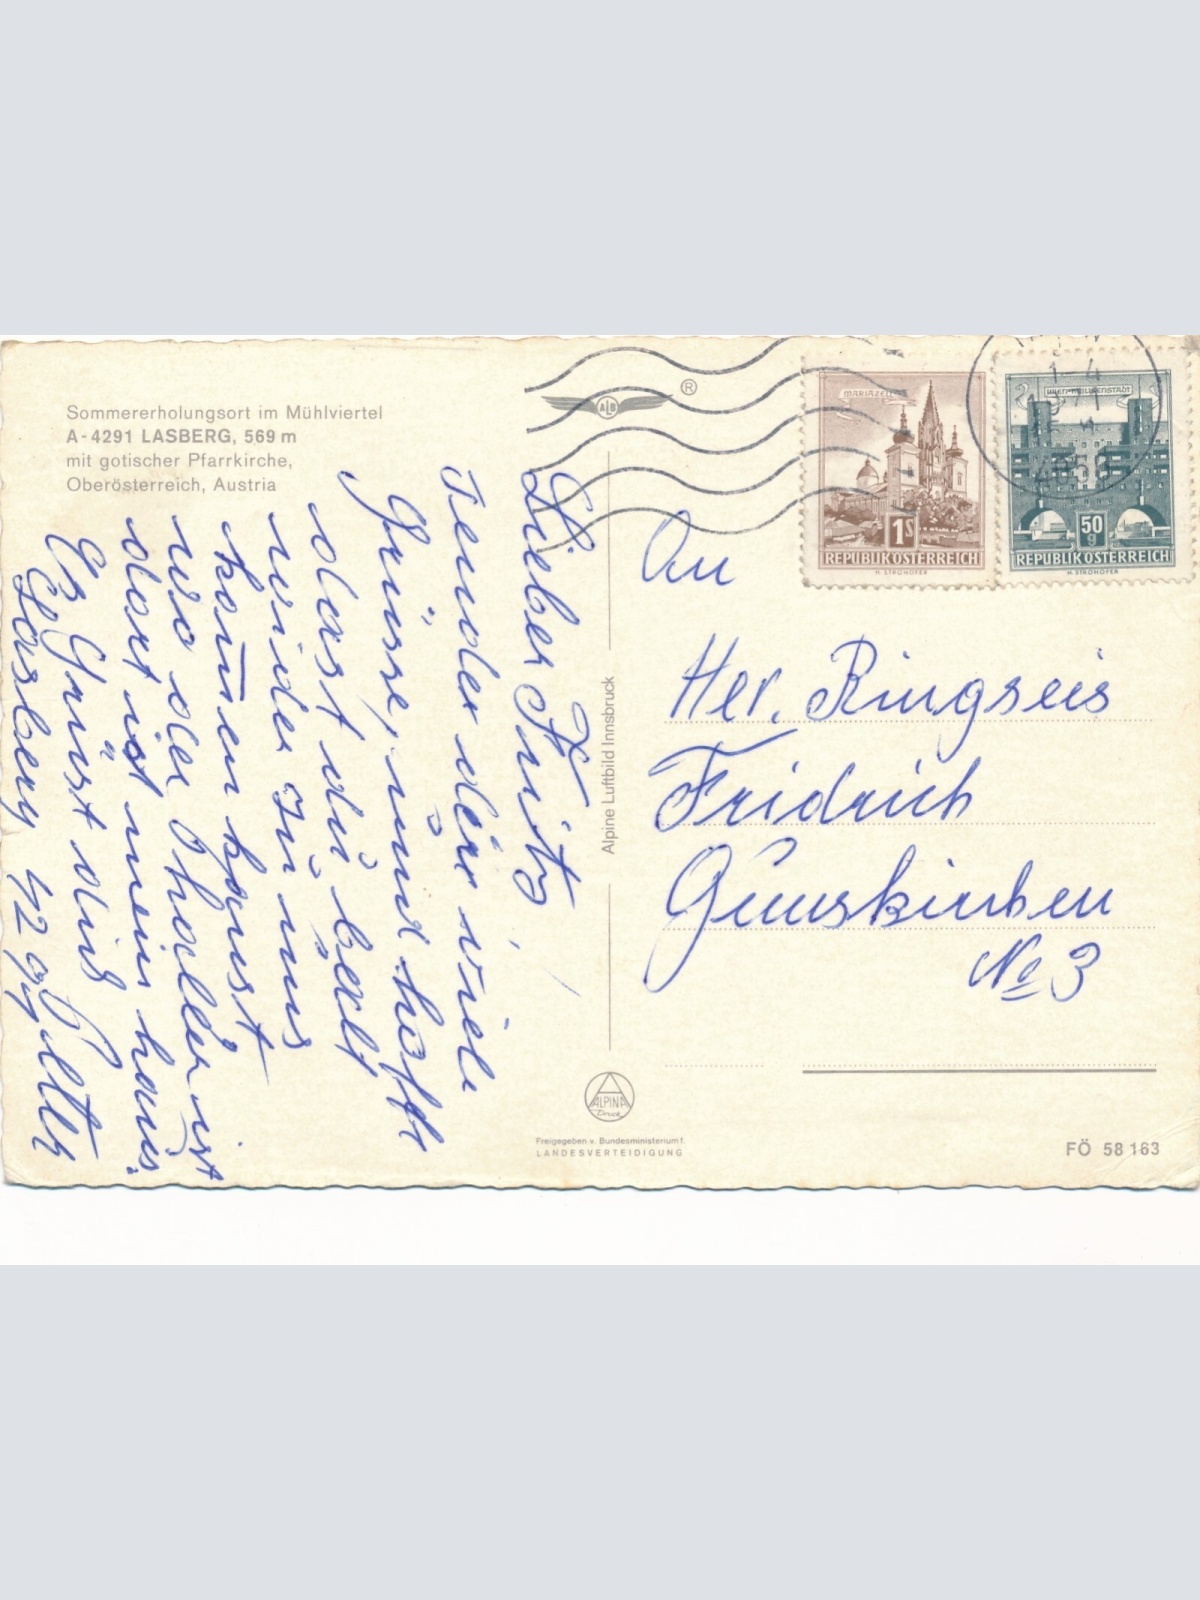 Sommererholungsort im Mühlviertel
A-4291 LASBERG, 569 m
mit gotischer Pfarrkirche,
Oberösterreich, Austria
ALB
®
MARIAZELL
1S
REPUBLIK ÖSTERREICH
H. STROHOFER
WIEN-HEILIGENSTADT
50
g
REPUBLIK ÖSTERREICH
H. STROHOFER
1-4
Lieber Fritz!
sender dir viele
Grüsse, und hofft
dast du bald
wider zu uns
komen hanst
wo der
dort ist mein haus.
Es Grüst dich
Lasberg 42
Alpine Luftbild Innsbruck
An
Her. Ringseis
Fridrich
Gunskirchen
No 3
ALPINA
Druck
Freigegeben v. Bundesministerium f.
LANDESVERTEIDIGUNG
FÖ 58 163